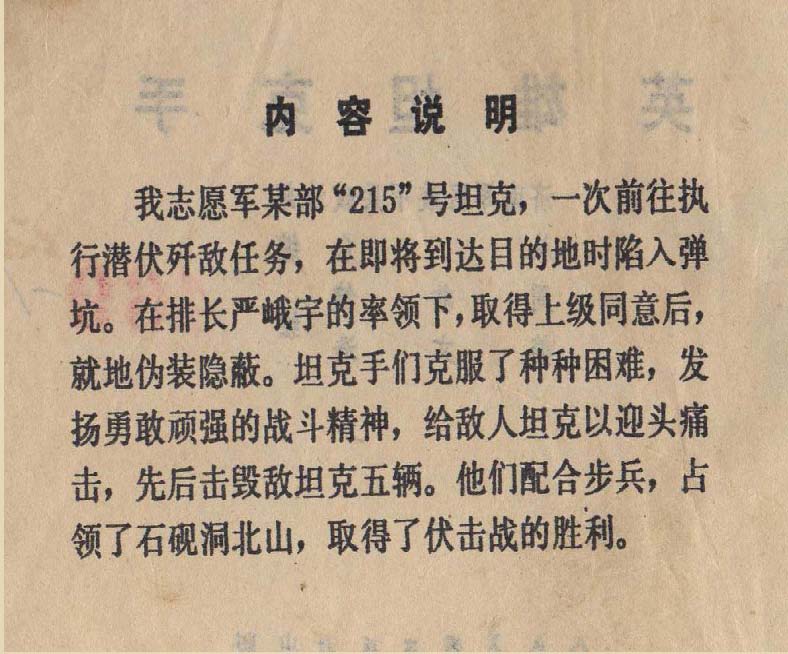 内容说明
我志愿军某部“215”号坦克，一次前往执
行潜伏歼敌任务，在即将到达目的地时陷入弹
坑。在排长严峨宇的率领下，取得上级同意后，
就地伪装隐蔽。坦克手们克服了种种困难，发
扬勇敢顽强的战斗精神，给敌人坦克以迎头痛
击，先后击毁敌坦克五辆。他们配合步兵，占
领了石砚洞北山，取得了伏击战的胜利。